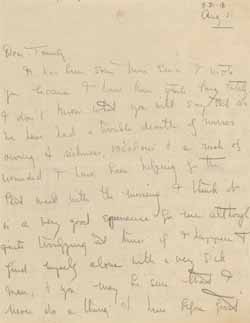 8-31-18
Aug 31
Dear Family
It has been some time since I wrote
you because I have been quite busy lately
I don't know what you will say but as
we have had a terrible dearth of nurses
owing to sickness, vacations & a rush of
wounded I have been helping in the
with the nursing & I think it
is a very good experience for me although
quite terrifying at times if I happen to
find myself alone with a very sick
man, & you may be sure that I
never do a thing I have before